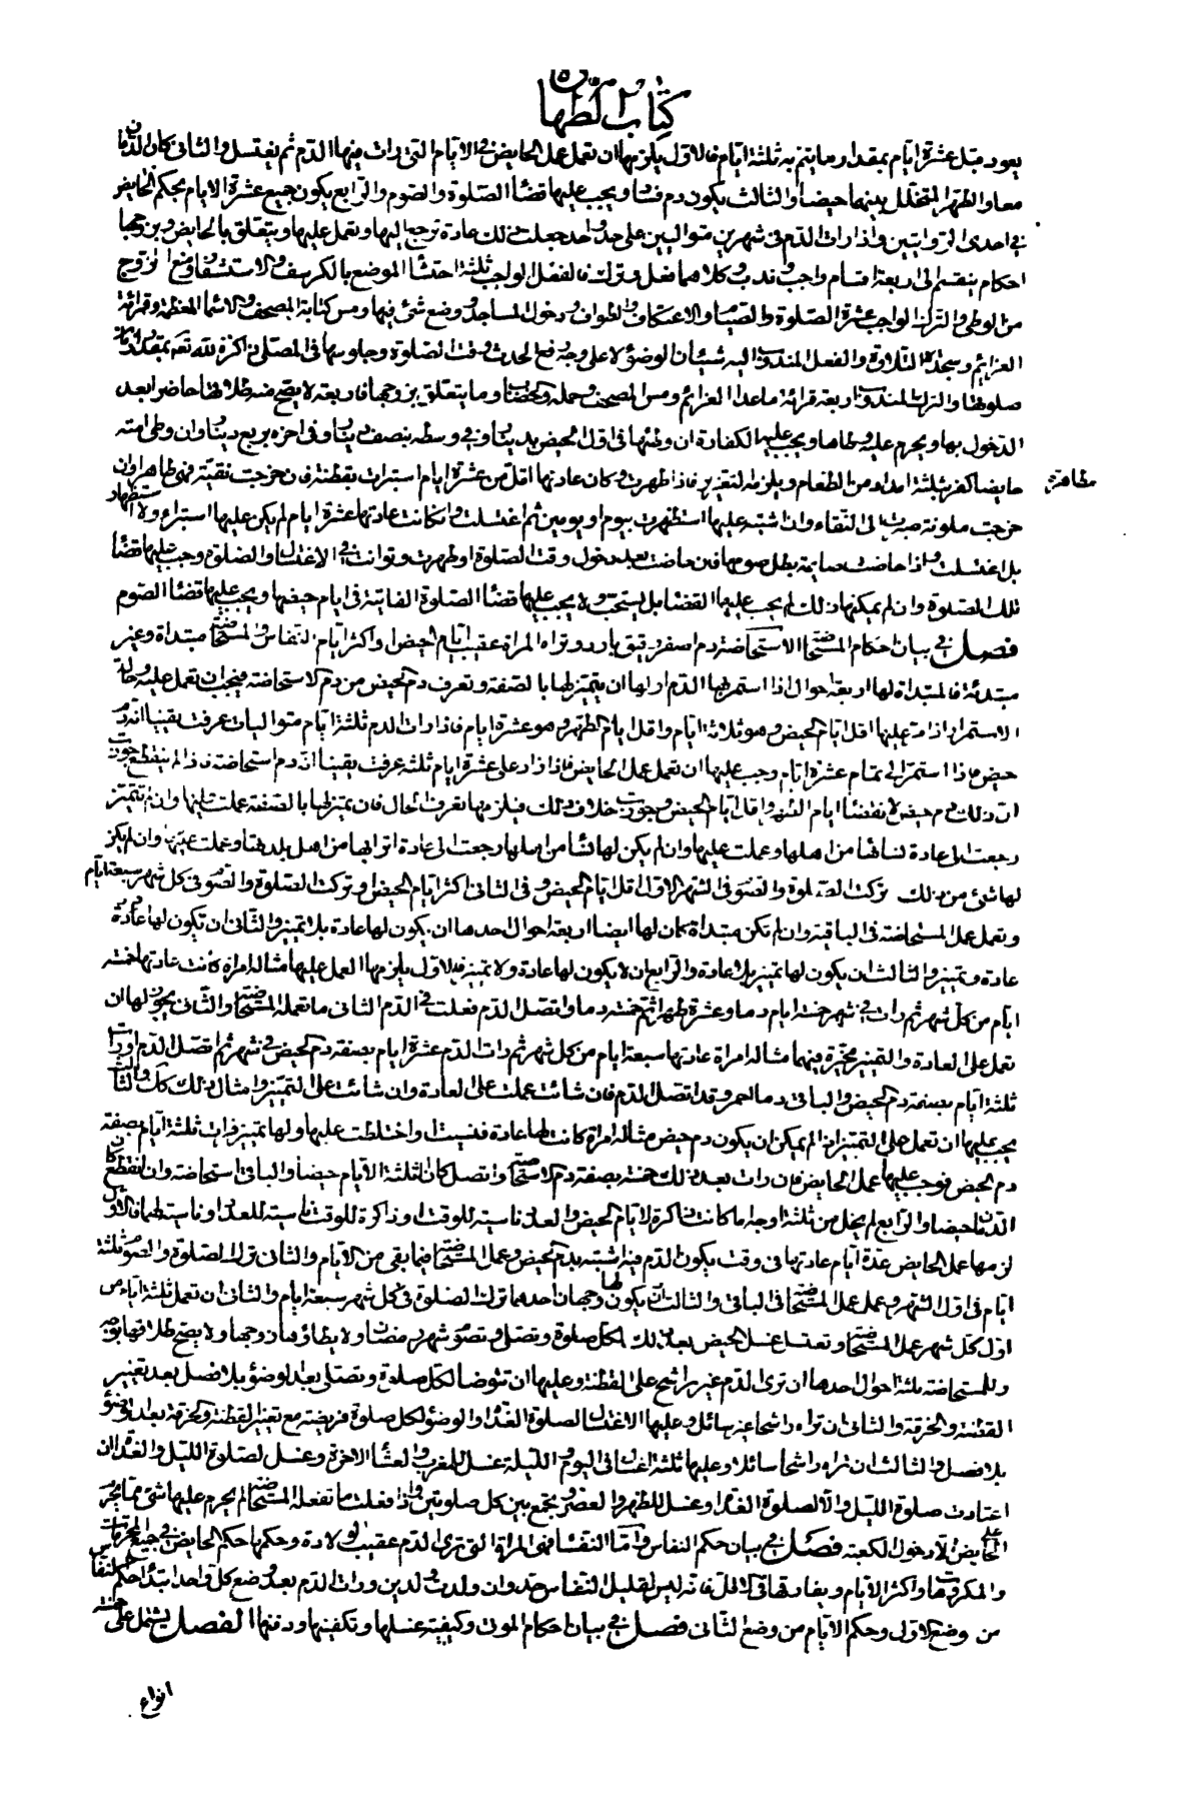 كتاب الطهارة
يعود قبل عشرة ايام بمقدار ما يتم به ثلثة ايام فالاول يلزمها ان تعمل عمل الحايض في الايام التى رات فيها الدم ثم يغتسل والثانى كان الدمان
معا والطهر المتخلل بينهما حيضا والثالث يكون دم فساد ويجب عليها قضاء الصلوة والصوم والرابع يكون جميع عشرة الايام بحكم الحايض
في احدى الروايتين واذا رات الدم فى شهرين متواليين على حد واحد جعلت ذلك عادة ترجع اليها وتعمل عليها ويتعلق بالحايض وبزوجها
احكام ينقسم الى اربعة اقسام واجب وندب وكلاهما فعل وترك فالفعل الواجب ثلثة احتشاء الموضع بالكرسف والاستثفار ومنع الزوج
من الوطى والترك الواجب عشرة الصلوة والصيام والاعتكاف والطواف ودخول المساجد ووضع شئ فيها ومس كتابة المصحف والاسماء المعظمة وقرائة
العزائم وسجدة التلاوة والفعل المندوب اليه شيئان الوضوء لا على وجه رفع الحدث وقت الصلوة وجلوسها فى المصلى ذاكرة لله تعم بمقدار زمان
صلوتها والترك المندوب اربعة قرائة ماعدا العزائم ومس المصحف وحمله والخضاب وما يتعلق بزوجها فاربعة لا يصح منه طلاقها حاضرا بعد
الدخول بها ويحرم عليه وطاها ويجب عليه الكفارة ان وطئها فى اول الحيض بدينار وفي وسطه بنصف دينار وفى اخره بربع دينار وان وطى امته
حايضا كفر بثلثة امداد من الطعام ويلزمه التعزير فاذا طهرت وكان عادتها اقل من عشرة ايام استبرات بقطنة فان خرجت نقية فهى طاهر وان
خرجت ملوثة صبرت الى النقاء وان اشتبه عليها استظهرت بيوم او يومين ثم اغتسلت وان كانت عادتها عشرة ايام لم يكن عليها استبراء ولا استظهار
بل اغتسلت واذا حاضت صايمة بطل صومها فان حاضت بعد دخول وقت الصلوة او طهرت وتوانت في الاغتسال والصلوة وجب عليها قضاء
تلك الصلوة وان لم يمكنها ذلك لم يجب عليها القضاء بل يستحب ولا يجب عليها قضاء الصلوة الفايتة فى ايام حيضها ويجب عليها قضاء الصوم
فصل في بيان احكام المستحاضة الاستحاضة دم اصفر رقيق بارد وتراه المراة عقيب ايام الحيض او اكثر ايام النفاس والمستحاضة مبتداة وغير
مبتدئة فالمبتداة لها اربعة احوال اذا استمر بها الدم اولها ان يتميز لها بالصفة وتعرف دم الحيض من دم الاستحاضة فيجب ان تعمل عليه
الاستمرار اذا مر عليها اقل ايام الحيض وهو ثلاثة ايام واقل ايام الطهر وهو عشرة ايام فاذا رات الدم ثلثة ايام متواليات عرفت يقينا انه دم
حيض فاذا استمر الى تمام عشرة ايام وجب عليها ان تعمل عمل الحايض فاذا زاد على عشرة ايام ثلثة عرفت يقينا ان دم استحاضة فاذا لم ينقطع جوزت
ان ذلك دم حيض لانقضاء ايام الطهر واقل ايام الحيض وجوزت خلاف ذلك فيلزمها تعرف الحال فان يتميز لها بالصفة عملت عليها وان لم تتميز
رجعت الى عادة نسائها من اهلها وعملت عليها وان لم يكن لها نساء من اهلها رجعت الى عادة اترابها من اهل بلدها وعملت عليها وان لم يكن
لها شئ من ذلك تركت الصلوة والصوم فى الشهر الاول اقل ايام الحيض وفى الثانى اكثر ايام الحيض او تركت الصلوة والصوم فى كل شهر سبعة ايام
وتعمل عمل المستحاضة فى الباقية وان لم تكن مبتداة كان لها ايضا اربعة احوال احدها ان يكون لها عادة بلا تميز والثانى ان تكون لها عادة
عادة وتميز والثالث ان يكون لها تميز بلا عادة والرابع ان لا يكون لها عادة ولا تميز فالاول يلزمها العمل عليها مثاله امراة كانت عادتها خمسة
ايام من كل شهر ثم رات في شهر خمسة ايام دما وعشرة طهرا ثم خمسة دما واتصل الدم فعلت فى الدم الثانى ما تعمله المستحاضة والثانى يجوز لها ان
تعمل على العادة والتميز مخيرة فيهما مثاله امراة عادتها سبعة ايام من كل شهر ثم رات الدم عشرة ايام بصفة دم الحيض فى شهر ثم اتصل الدم او رات
ثلثة ايام بصفة دم الحيض والباقى دما احمر وقد اتصل الدم فان شائت عملت على العادة وان شائت على التميز وامثال ذلك كك والثالث
يجب عليها ان تعمل على التميز اذا لم يمكن ان يكون دم حيض مثاله امراة كانت لها عادة فنسيت او اختلطت عليها ولها تميز فرات ثلثة ايام بصفة
دم الحيض فوجب عليها عمل الحايض فان رات بعد ذلك خمسة بصفة دم الاستحاضة واتصل كان الثلثة الايام حيضا والباقى استحاضة وان انقطع كان
الدمان حيضا والرابع لم يخل من ثلثة اوجه اما كانت ذاكرة لايام الحيض والعدد ناسية للوقت وذاكرة للوقت ناسية للعدد او ناسية لهما فالاول
لزمها عمل الحايض عدة ايام عادتها فى وقت يكون الدم فيه اشبه بدم الحيض وعمل المستحاضة فيما بقى من الايام والثانى ترك الصلوة والصوم ثلثة
ايام فى اول الشهر وعمل عمل المستحاضة فى الباقى والثالث يكون لها وجهان احدهما ترك الصلوة فى كل شهر سبعة ايام والثانى ان تعمل ثلثة ايام من
اول كل شهر عمل المستحاضة وتغتسل غسل الحيض بعد ذلك لكل صلوة وتصلى وتصوم شهر رمضان ولا يطاؤها زوجها ولا يصح طلاقها بوجه
وللمستحاضة ثلثة احوال احدها ان ترى الدم غير راشح على القطنة وعليها ان تتوضا لكل صلوة وتصلى بعد الوضوء بلا فصل بعد تغيير
القطنة والخرقة والثانى ان تراه راشحا غير سائل وعليها الاغتسال لصلوة الغداة والوضوء لكل صلوة فريضة مع تغيير القطنة والخرقة بعد الوضوء
بلا فصل والثالث ان تراه راشحا سائلا وعليها ثلثة اغتسال فى اليوم والليلة غسل للمغرب والعشاء الاخرة وغسل لصلوة الليل والغداة ان
اعتادت صلوة الليل والا لصلوة الغداة وغسل للظهر والعصر وتجمع بين كل صلوتين واذا فعلت ما تفعله المستحاضة لم يحرم عليها شئ مما يحرم
على الحايض الا دخول الكعبة فصل في بيان حكم النفاس واما النفساء فهى المراة التى ترى الدم عقيب الولادة وحكمها حكم الحايض فى جميع المحرمات
والمكروهات واكثر الايام ويفارقها فى الاقل فانه ليس لقليل النفاس حد وان ولدت ولدين ورات الدم بعد وضع كل واحد ابتداء حكم النفاس
من وضع الاول وحكم الايام من وضع الثانى فصل في بيان احكام الموت وكيفية غسلها وتكفينها ودفنها الفصل يشتمل على خمسة
انواع